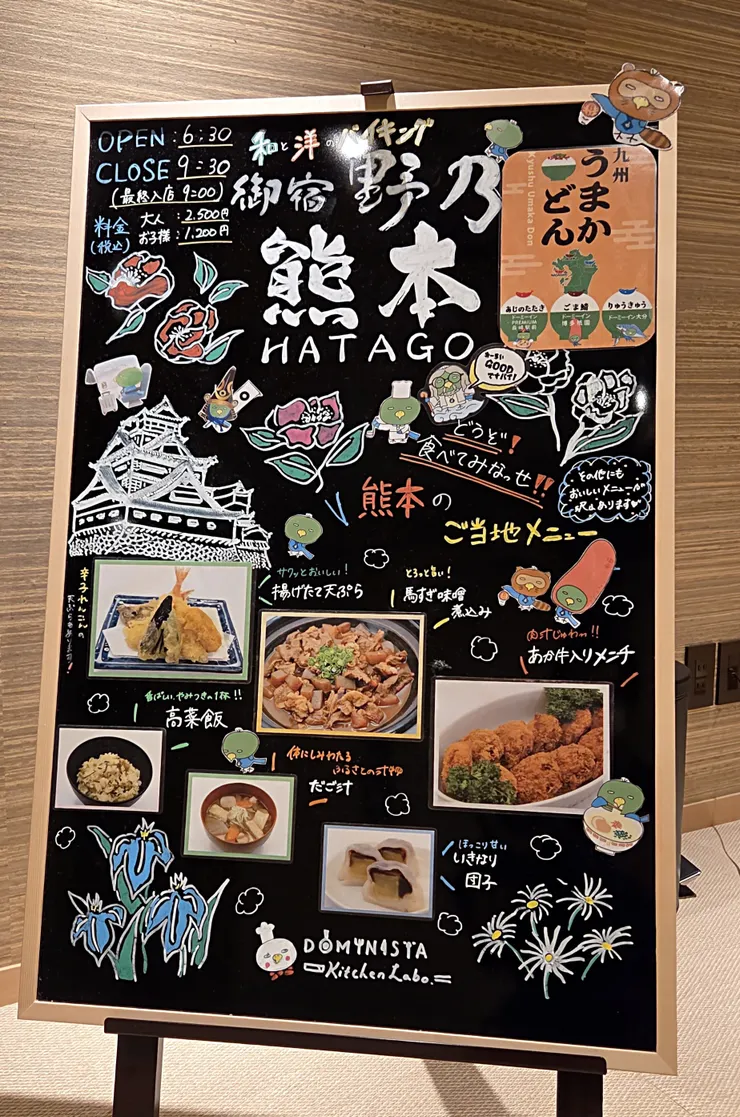 OPEN：6:30
CLOSE 9:30
(最終入店 9:00)
料金(税込)
大人：2.500円
お子様：1.200円
和と洋のバイキング
御宿 野乃
熊本
HATAGO
九州
うまか
どん
Kyushu Umaka Don
あじのたたき
ごま鯖
りゅうきゅう
ドーミーイン
PREMIUM
長崎駅前
ドーミーイン
博多祇園
ドーミーイン大分
GOOD
ですバイ!
どうぞ!
食べてみなっせ!!
その他にも
おいしいメニューが
沢山あります
熊本の
ご当地メニュー
辛子れんこんの
天ぷらもあります!
サクッとおいしい!
揚げたて天ぷら
とろっと旨い!
馬すじ味噌
煮込み
肉汁じゅわっ!!
あか牛入りメンチ
香ばしい、やみつきの1杯!!
高菜飯
体にしみわたる
ふるさとの汁物
だご汁
ほっこり甘い
いきなり
団子
DOMINISTA
Kitchen Labo.